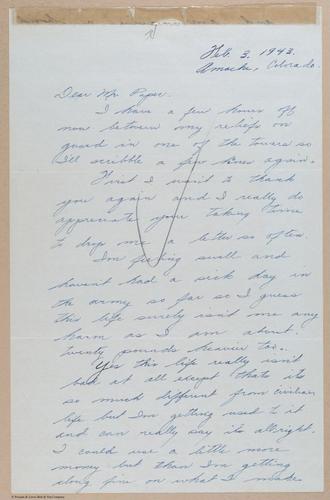 Feb. 3, 1943.
Amache, Colorado.
Dear Mr. Piper:
I have a few hours off
now between my reliefs on
guard in one of the towers so
I'll scribble a few lines again.
First I want to thank
you again and I really do
appreciate your taking time
to drop me a letter so often.
I'm feeling swell and
haven't had a sick day in
the army so far so I guess
this life surely isn't me any
harm as I am about
twenty pounds heavier too.
Yes this life really isn't
bad at all except thats its
so much different from civilian
life but I'm getting used to it
and can really say its allright.
I could use a little more
money but than I'm getting
along fine on what I make